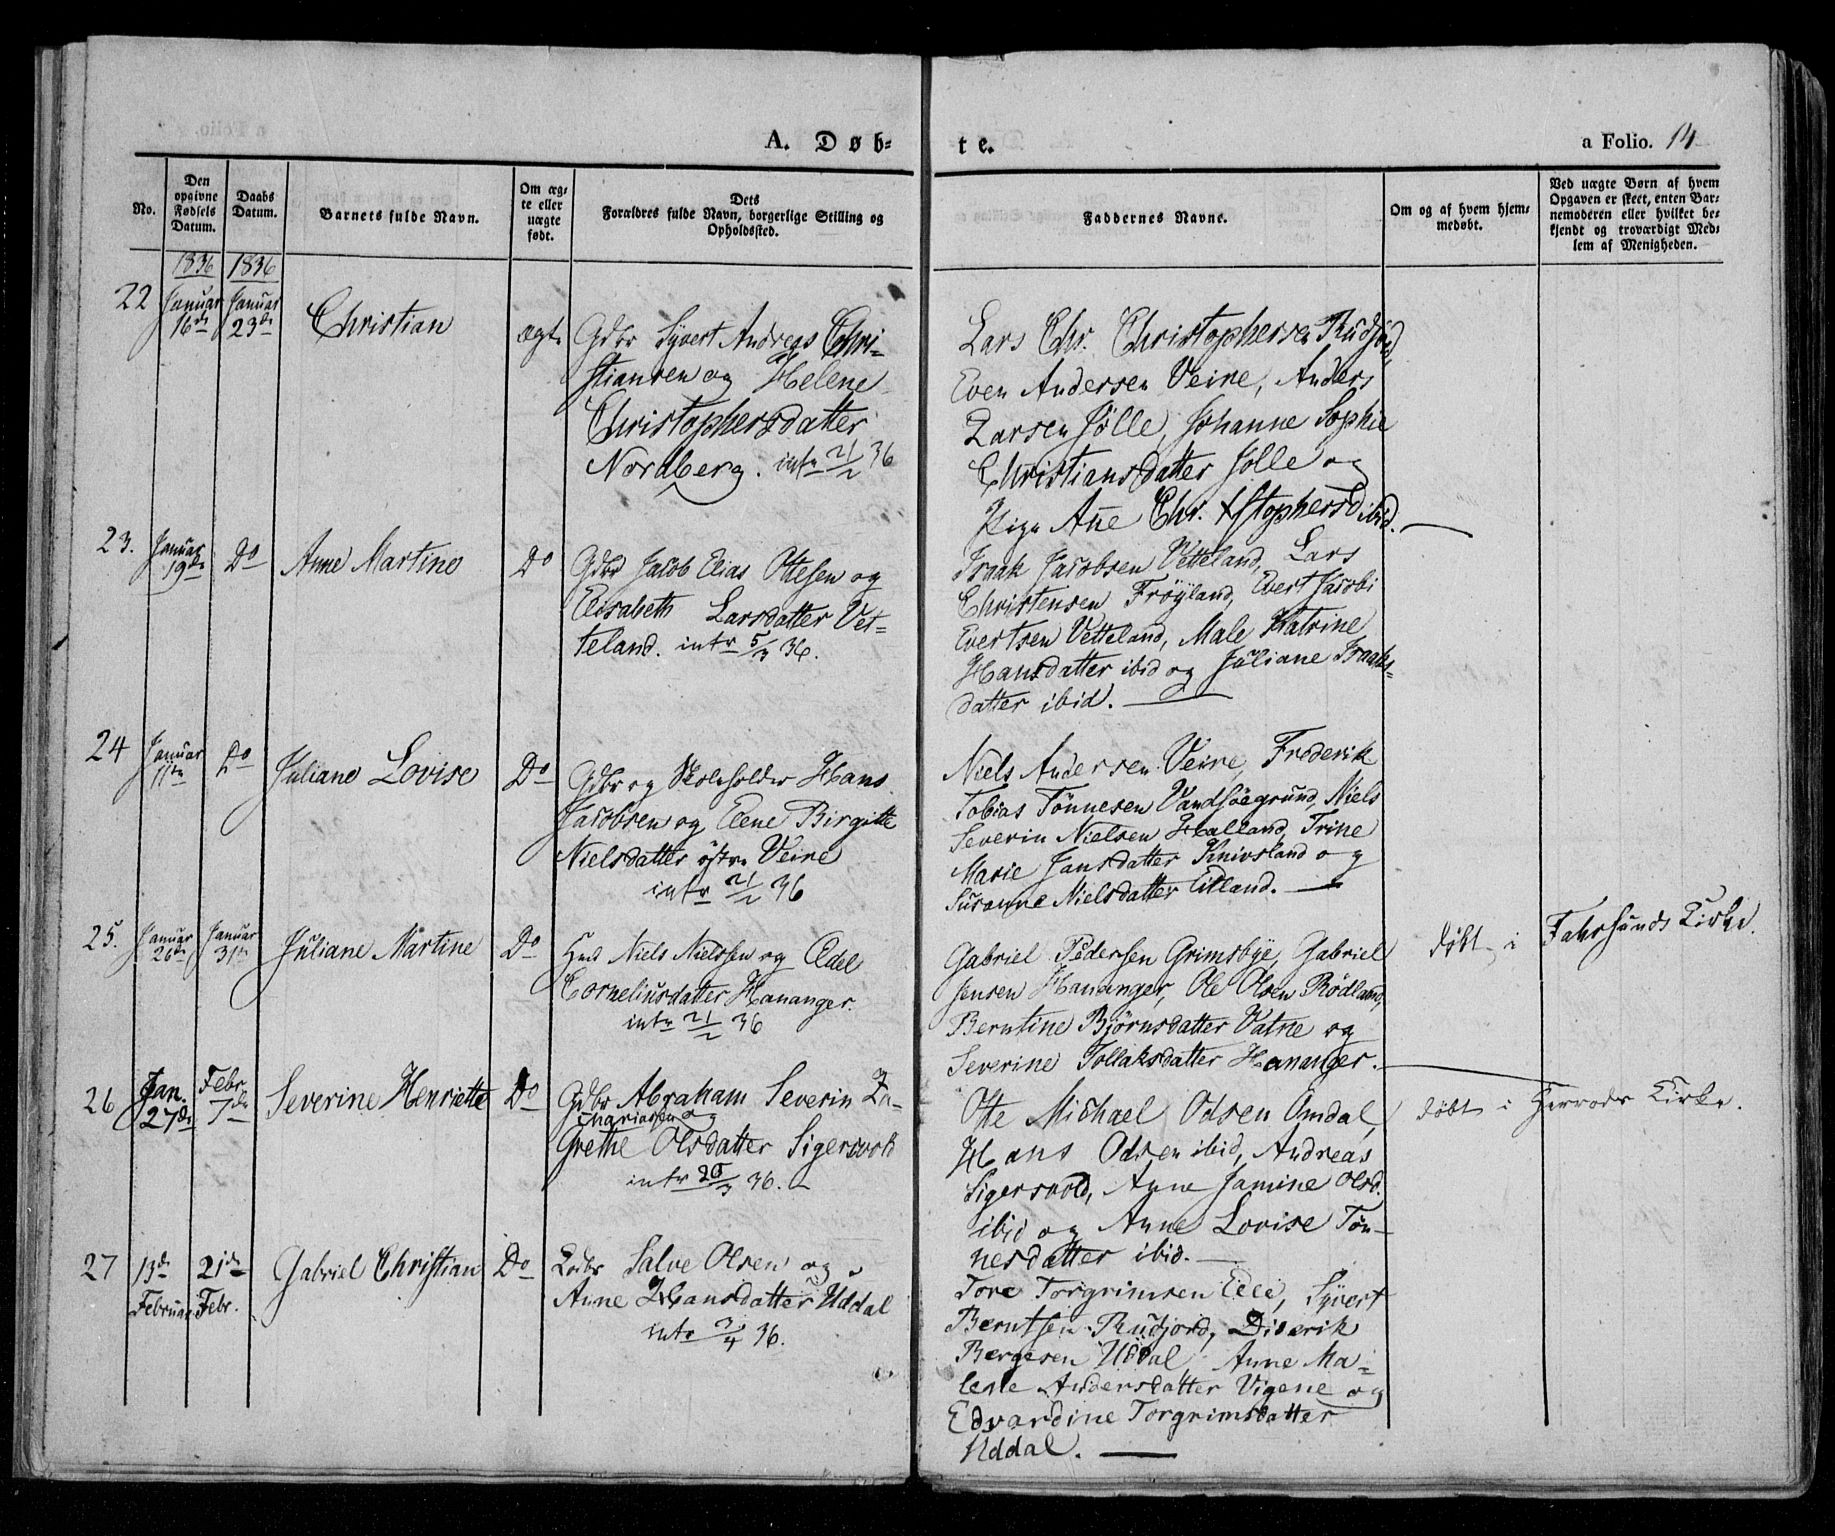 A. Døb-
te.
a Folio. 14
No.
Den opgivne Fødsels Datum.
Daabs Datum.
Barnets fulde Navn.
Om ægte eller uægte født.
Dets Forældres fulde Navn, borgerlige Stilling og Opholdssted.
Faddernes Navne.
Om og af hvem hjemmedøbt.
Ved uægte Børn af hvem Opgaven er skeet, enten Barnemoderen eller hvilket bekjendt og troværdigt Medlem af Menigheden.
1836 1836
22 Januar 16de Januar 23de Christian ægte
Gdbr Syvert Andreas Chri-
stiansen og Helene
Christophersdatter
Nordberg. intr 21/2 36
Lars Chr. Christophersen Rudjord,
Even Andersen Veire, Anders
Larsen Jølle, Johanne Sophie
Christiansdatter Jølle og
Pige Ane Chr. Xstophersd ibid.
23. Januar 19de Do Anne Martine Do
Gdbr Jacob Elias Ottesen og
Elisabeth Larsdatter Vet-
teland. intr 5/3 36.
Isaak Jacobsen Vetteland, Lars
Christensen Frøyland, Evert Jacobi
Evertsen Vetteland, Male Katrine
Hansdatter ibid og Juliane Isaaks-
datter ibid.
24 Januar 11te Do Juliane Lovise Do
Gdbr og Skoleholder Hans
Jacobsen og Elene Birgitte
Nielsdatter østre Veire
intr 21/2 36
Niels Andersen Veire, Frederik
Tobias Tönnesen Vandsöegrund, Niels
Severin Nielsen Halland, Trine
Marie Jansdatter Knivsland og
Susanne Nielsdatter Eitland.
25. Januar 26de Januar 31te Juliane Martine Do
Niels Nielssen og Edel
Corneliusdatter Hananger.
intr 21/2 36
Gabriel Pedersen Grimsbye, Gabriel
Jensen Hananger, Ole Olsen Rödland,
Berntine Björnsdatter Vatne og
Severine Tollaksdatter Hananger.
døbt i Farsunds Kirke.
26 Jan. 27de Febr. 7de Severine Henriette Do
Gdbr Abraham Severin Za-
chariassen og
Grethe Olsdatter Sigersvold
intr 20/3 36.
Otte Michael Odsen Omdal,
Hans Odsen ibid, Andreas
Sigersvold, Anne Jamine Olsd.
ibid og Anne Lovise Tön-
nesdatter ibid.
døbt i Herrods Kirke.
27 13de Februar 21de Febr. Gabriel Christian Do
Salve Olsen og
Anne Hansdatter Uddal
intr 3/4 36.
Tore Torgrimsen Eele, Syvert
Berntsen Rudjord, Diderik
Bergesen Uddal, Anne Ma-
lene Andersdatter Vigene og
Edvardine Torgrimsdatter
Uddal.